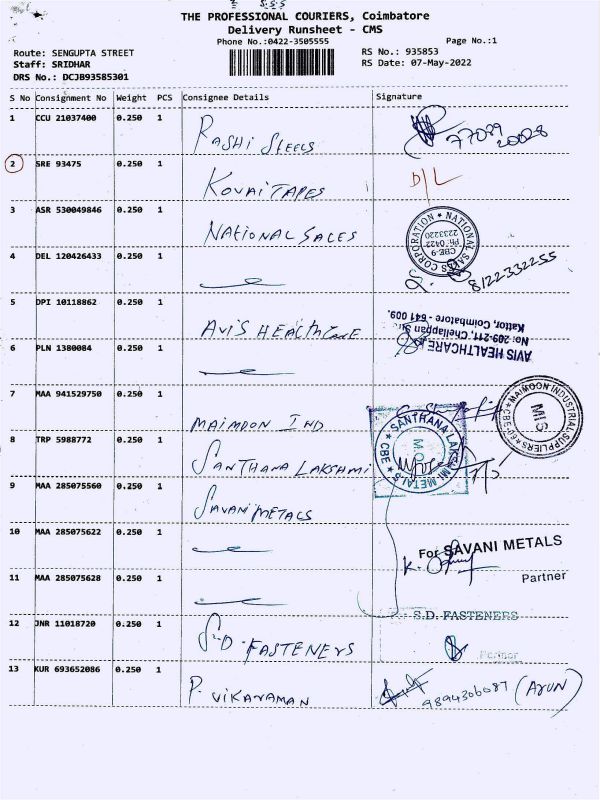 THE PROFESSIONAL COURIERS, Coimbatore
Delivery Runsheet - CMS
Phone No.:0422-3505555
Page No.:1
Route: SENGUPTA STREET
RS No.: 935853
Staff: SRIDHAR
RS Date: 07-May-2022
DRS No.: DCJB93585301
S No Consignment No Weight PCS Consignee Details Signature
1 CCU 21037400 0.250 1 RASHI STEELS
2 SRE 93475 0.250 1 KOVAI TAPES D/L
3 ASR 530049846 0.250 1 NATIONAL SALES
NATIONAL SALES CORPORATION
CBE-9
PH: 0422
2233220
4 DEL 120426433 0.250 1 8122332255
5 DPI 10118862 0.250 1 AVIS HEALTHCARE
AVIS HEALTHCARE
No: 209-211, Chellappan St
Kattor, Coimbatore - 641 009.
6 PLN 1380084 0.250 1
7 MAA 941529750 0.250 1 MAIMOON IND
MAIMOON INDUSTRIAL SUPPLIERS
M/S
8 TRP 5988772 0.250 1 SANTHANA LAKSHMI 7/5
SANTHANA LAKSHMI METALS
CBE
9 MAA 285075560 0.250 1 SAVANI METALS
10 MAA 285075622 0.250 1
For SAVANI METALS
Partner
11 MAA 285075628 0.250 1
12 JNR 11018720 0.250 1 S-D. FASTENERS
S.D. FASTENERS
Partner
13 KUR 693652086 0.250 1 P. VIKARAMAN
9894306087 (ARUN)